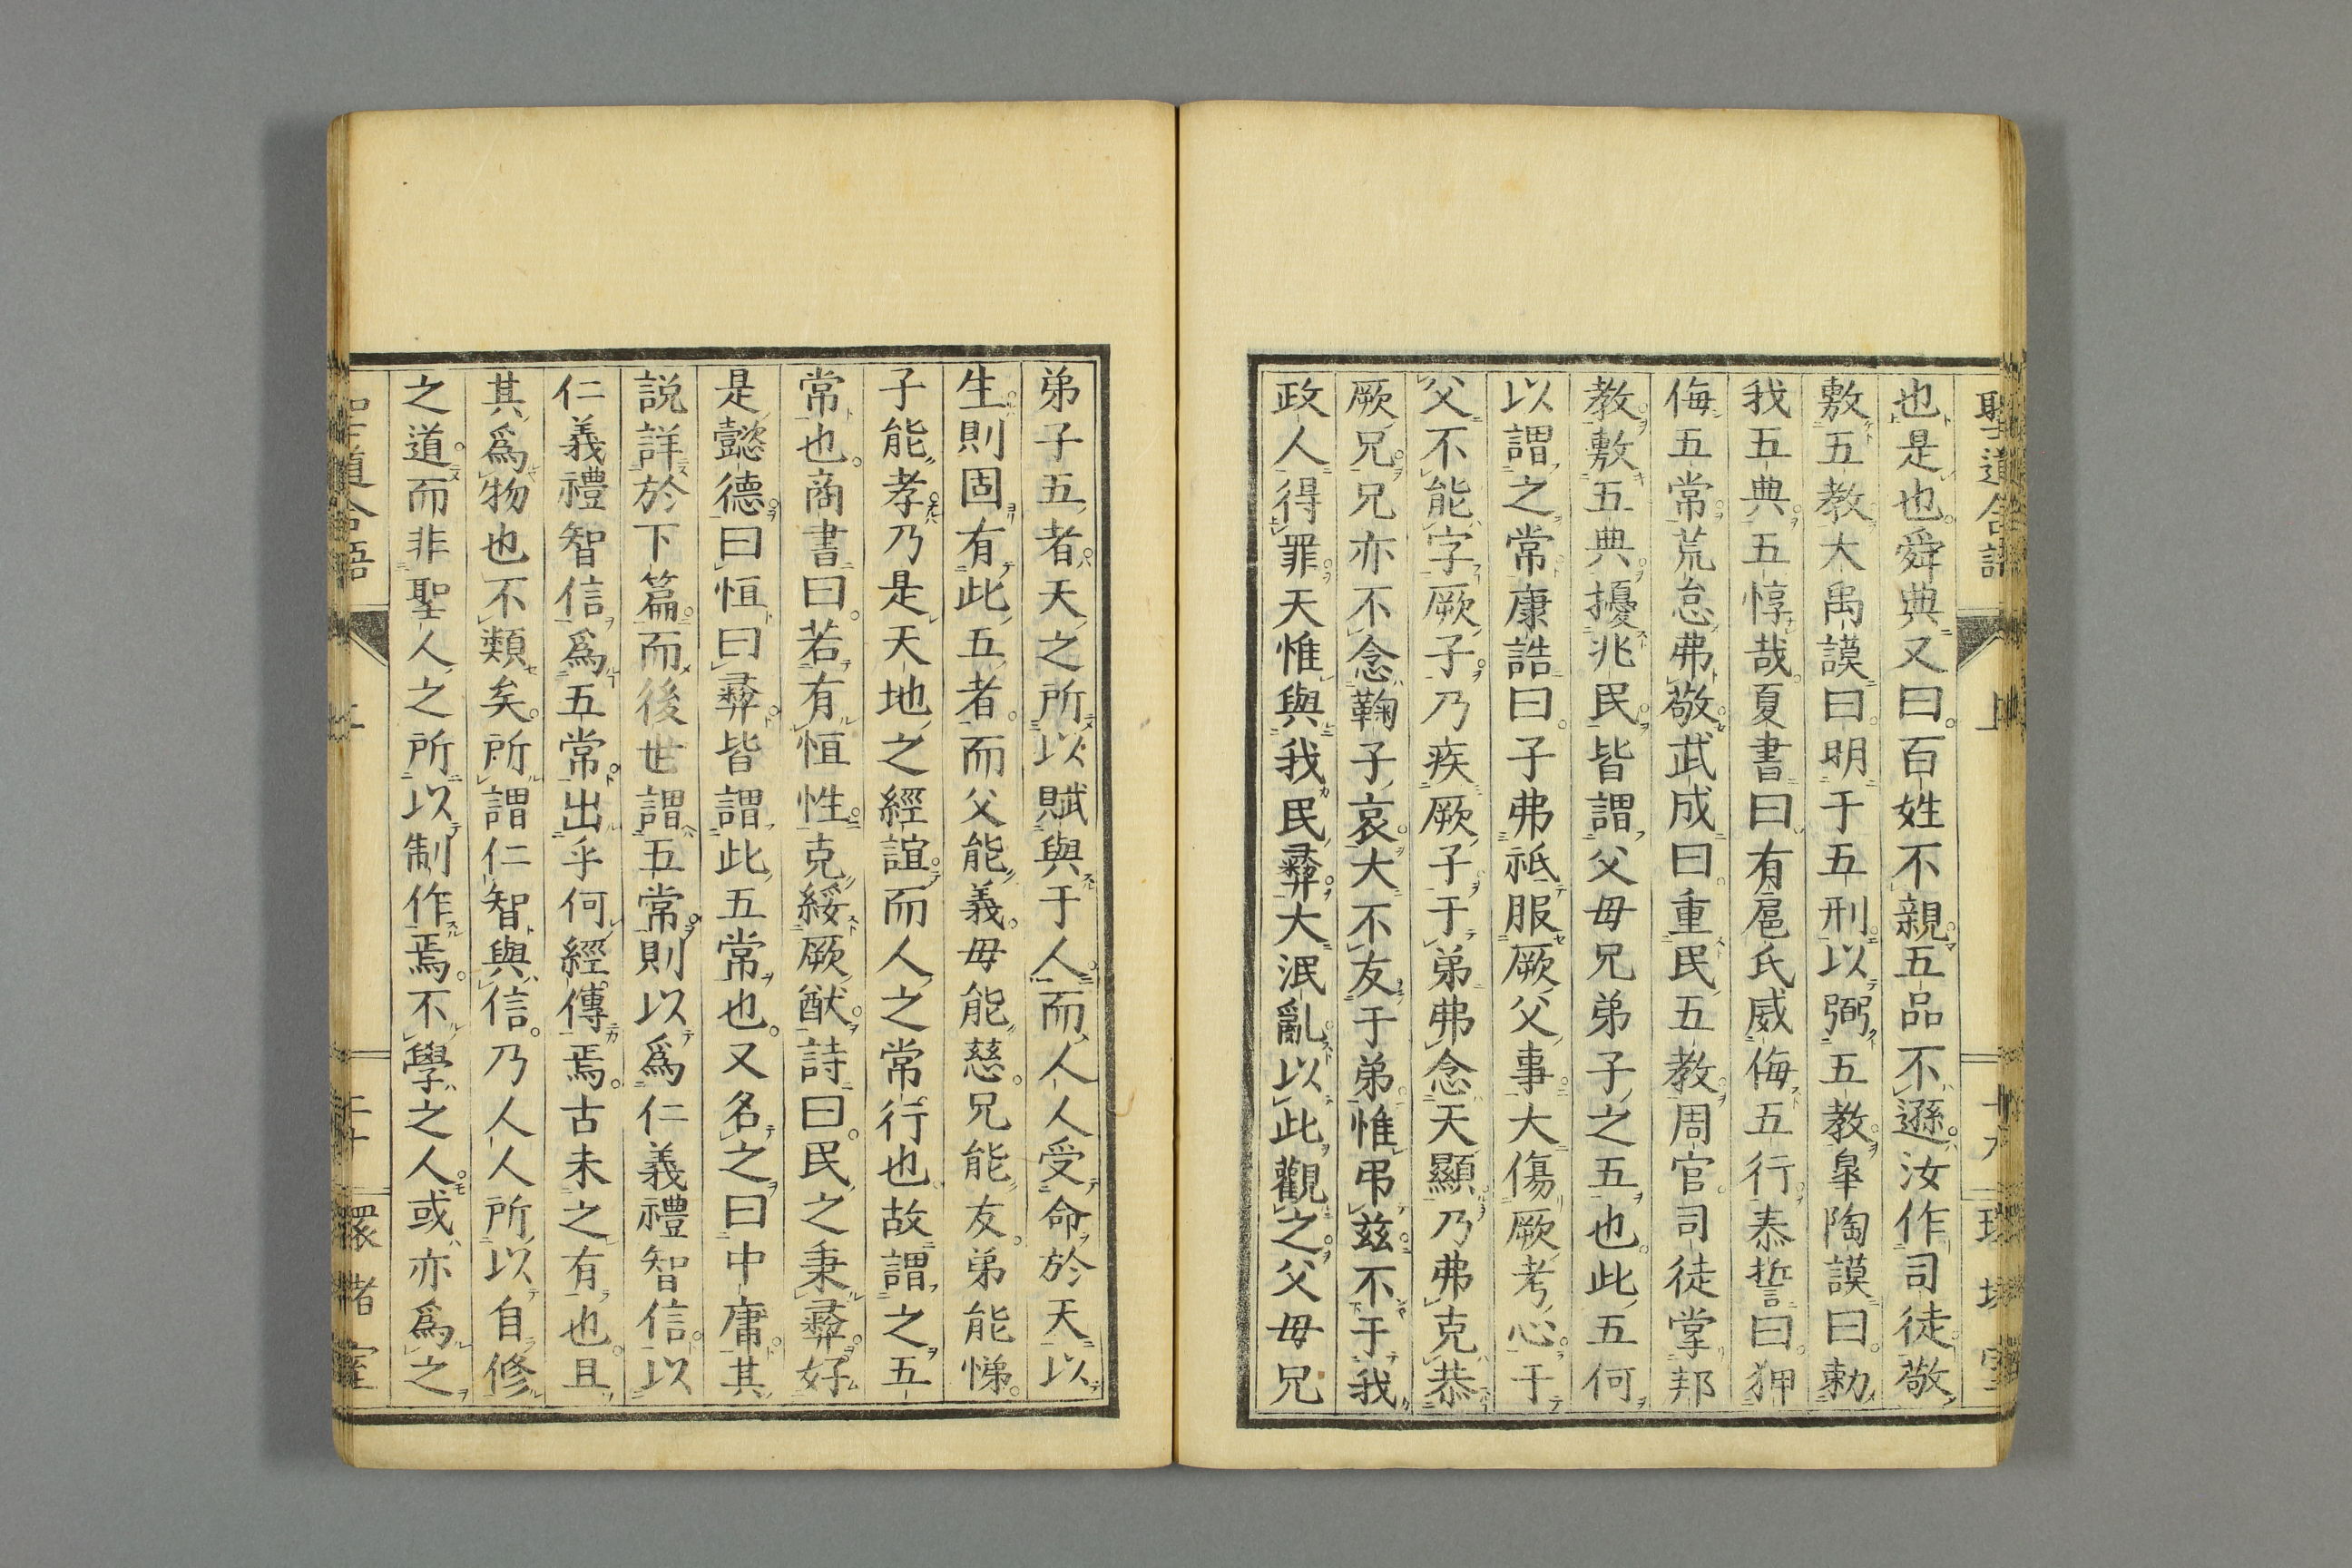 聖道合語 上 十九
也是也。舜典又曰。百姓不親五品不遜。汝作司徒敬
敷五教大禹謨曰。明于五刑以弼五教。皐陶謨曰。勅
我五典五惇哉。夏書曰有扈氏威侮五行泰誓曰。狎
侮五常。荒怠弗敬武成曰重民五教。周官司徒掌邦
教。敷五典。擾兆民。皆謂父母兄弟子之五也。此五何
以謂之常康誥曰。子弗祗服厥父事。大傷厥考心。于
父不能字厥子。乃疾厥子于弟弗念天顯。乃弗克恭
厥兄。兄亦不念鞠子哀。大不友于弟惟弔茲。不于我
政人得罪。天惟與我民彝。大泯亂以此觀之。父母兄
弟子五者。天之所以賦與于人。而人人受命於天以
生則固有此五者。而父能義。母能慈。兄能友。弟能悌。
子能孝乃是天地之經誼。而人之常行也故謂之五
常也。商書曰。若有恒性。克綏厥猷。詩曰。民之秉彝好
是懿德。曰恒曰彝皆謂此五常也。又名之曰中庸。其
説詳於下篇。而後世謂五常。則以爲仁義禮智信。以
仁義禮智信爲五常。出乎何經傳焉。古未之有也。且
其爲物也不類矣。所謂仁智與信。乃人人所以自修
之道。而非聖人之所以制作焉。不學之人。或亦爲之
聖道合語 上 二十 環堵室